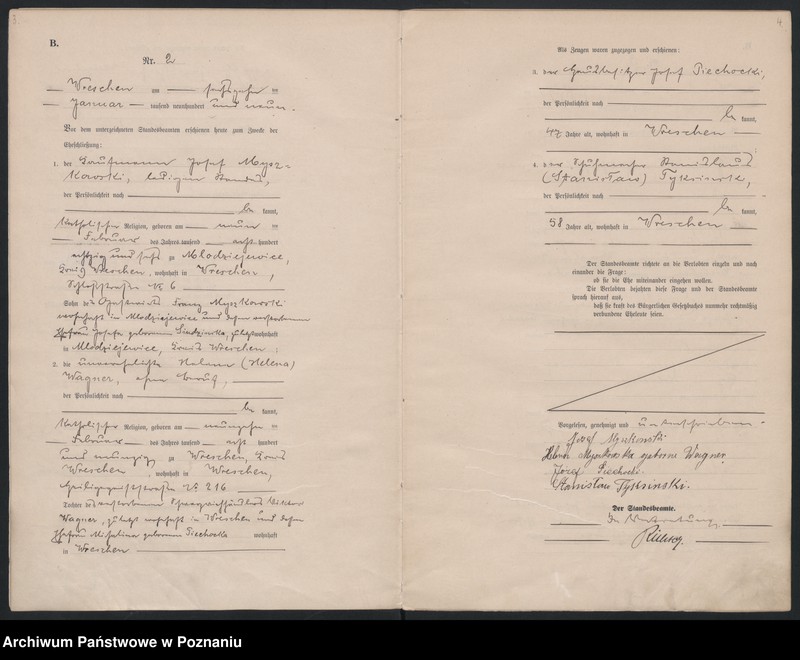 B.
Nr. 2
Wreschen am sechszehn ten
Januar tausend neunhundert und neun.
Vor dem unterzeichneten Standesbeamten erschienen heute zum Zwecke der
Eheschließung:
1. der Kaufmann Josef Mysz=
kowski, ledigen Standes,
der Persönlichkeit nach
be kannt,
katholischer Religion, geboren am neun ten
Februar des Jahres tausend acht hundert
achtzig und sechs zu Mlodziejewice,
Kreis Wreschen, wohnhaft in Wreschen,
Schloßstraße № 6
Sohn des Gastwirts Franz Myszkowski
wohnhaft in Mlodziejewice und dessen verstorbenen
Ehefrau Josefa geborenen zuletzt wohnhaft
in Mlodziejewice, Kreis Wreschen.
2. die unverehelichte Helene (Helena)
Wagner, ohne Beruf,
der Persönlichkeit nach
be kannt,
katholischer Religion, geboren am neunzehn ten
Februar des Jahres tausend acht hundert
und neunzig zu Wreschen, Kreis
Wreschen, wohnhaft in Wreschen,
№ 216
Tochter des verstorbenen Viktor
Wagner, zuletzt wohnhaft in Wreschen und dessen
Ehefrau Michalina geborenen Piechocka wohnhaft
in Wreschen
4
Als Zeugen waren zugezogen und erschienen:
3. der Josef Piechocki,
der Persönlichkeit nach
be kannt,
47 Jahre alt, wohnhaft in Wreschen
4. der Schuhmacher Stanislaus
(Stanisław) Tyksinski,
der Persönlichkeit nach
be kannt,
58 Jahre alt, wohnhaft in Wreschen
Der Standesbeamte richtete an die Verlobten einzeln und nach
einander die Frage:
ob sie die Ehe miteinander eingehen wollen.
Die Verlobten bejahten diese Frage und der Standesbeamte
sprach hierauf aus,
daß sie kraft des Bürgerlichen Gesetzbuchs nunmehr rechtmäßig
verbundene Eheleute seien.
Vorgelesen, genehmigt und unterschrieben.
Józef Myszkowski
Helena Myszkowska geborene Wagner.
Józef Piechocki.
Stanisław Tyksinski.
Der Standesbeamte.
In Vertretung.
Archiwum Państwowe w Poznaniu